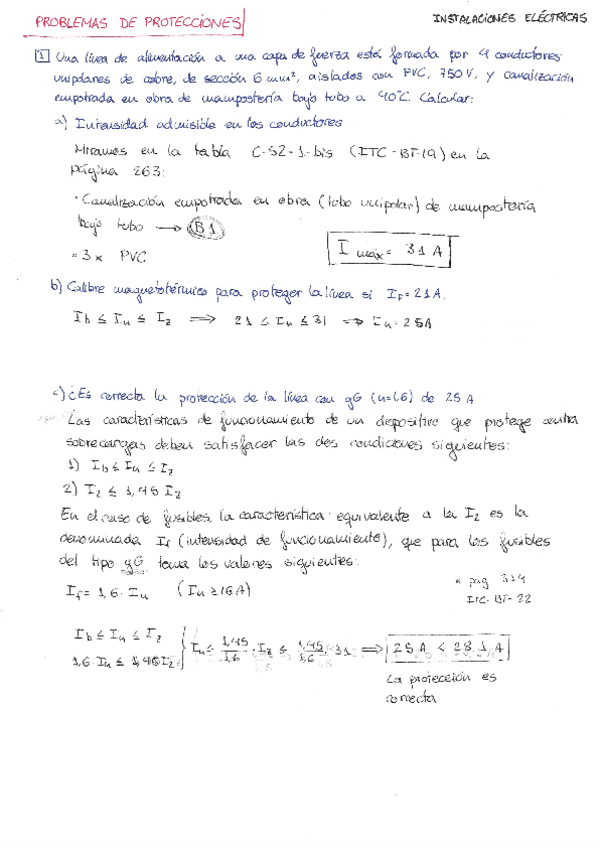 PROBLEMAS DE PROTECCIONES
INSTALACIONES ELÉCTRICAS
1 Una línea de alimentación a una capa de fuerza está formada por 4 conductores
unipolares de cobre, de sección 6 mm², aislados con PVC, 750 V, y canalización
empotrada en obra de mampostería bajo tubo a 40°C. Calcular:
a) Intensidad admisible en los conductores
Miramos en la tabla C-52-1-bis (ITC-BT-19) en la
página 263:
· Canalización empotrada en obra (tubo unipolar) de mampostería
bajo tubo → B1
= 3x PVC
I max = 31 A
b) Calibre magnetotérmico para proteger la línea si IF = 21A.
Ib ≤ In ≤ Iz ⟹ 21 ≤ In ≤ 31 ⟹ In = 25A
c) ¿Es correcta la protección de la línea con gG (n=1,6) de 25 A
Las características de funcionamiento de un dispositivo que protege contra
sobrecargas deben satisfacer las dos condiciones siguientes:
1) Ib ≤ In ≤ Iz
2) I2 ≤ 1,45 Iz
En el caso de fusibles, la característica equivalente a la I2 es la
denominada If (intensidad de funcionamiento), que para los fusibles
del tipo gG toma los valores siguientes:
If = 1,6 · In (In ≥ 16A)
* pág 314
ITC-BT-22
Ib ≤ In ≤ Iz
1,6 · In ≤ 1,45 Iz } In ≤ 1,45/1,6 · Iz ≤ 1,45/1,6 · 31 ⟹ 25 A < 28,1 A
La protección es
correcta